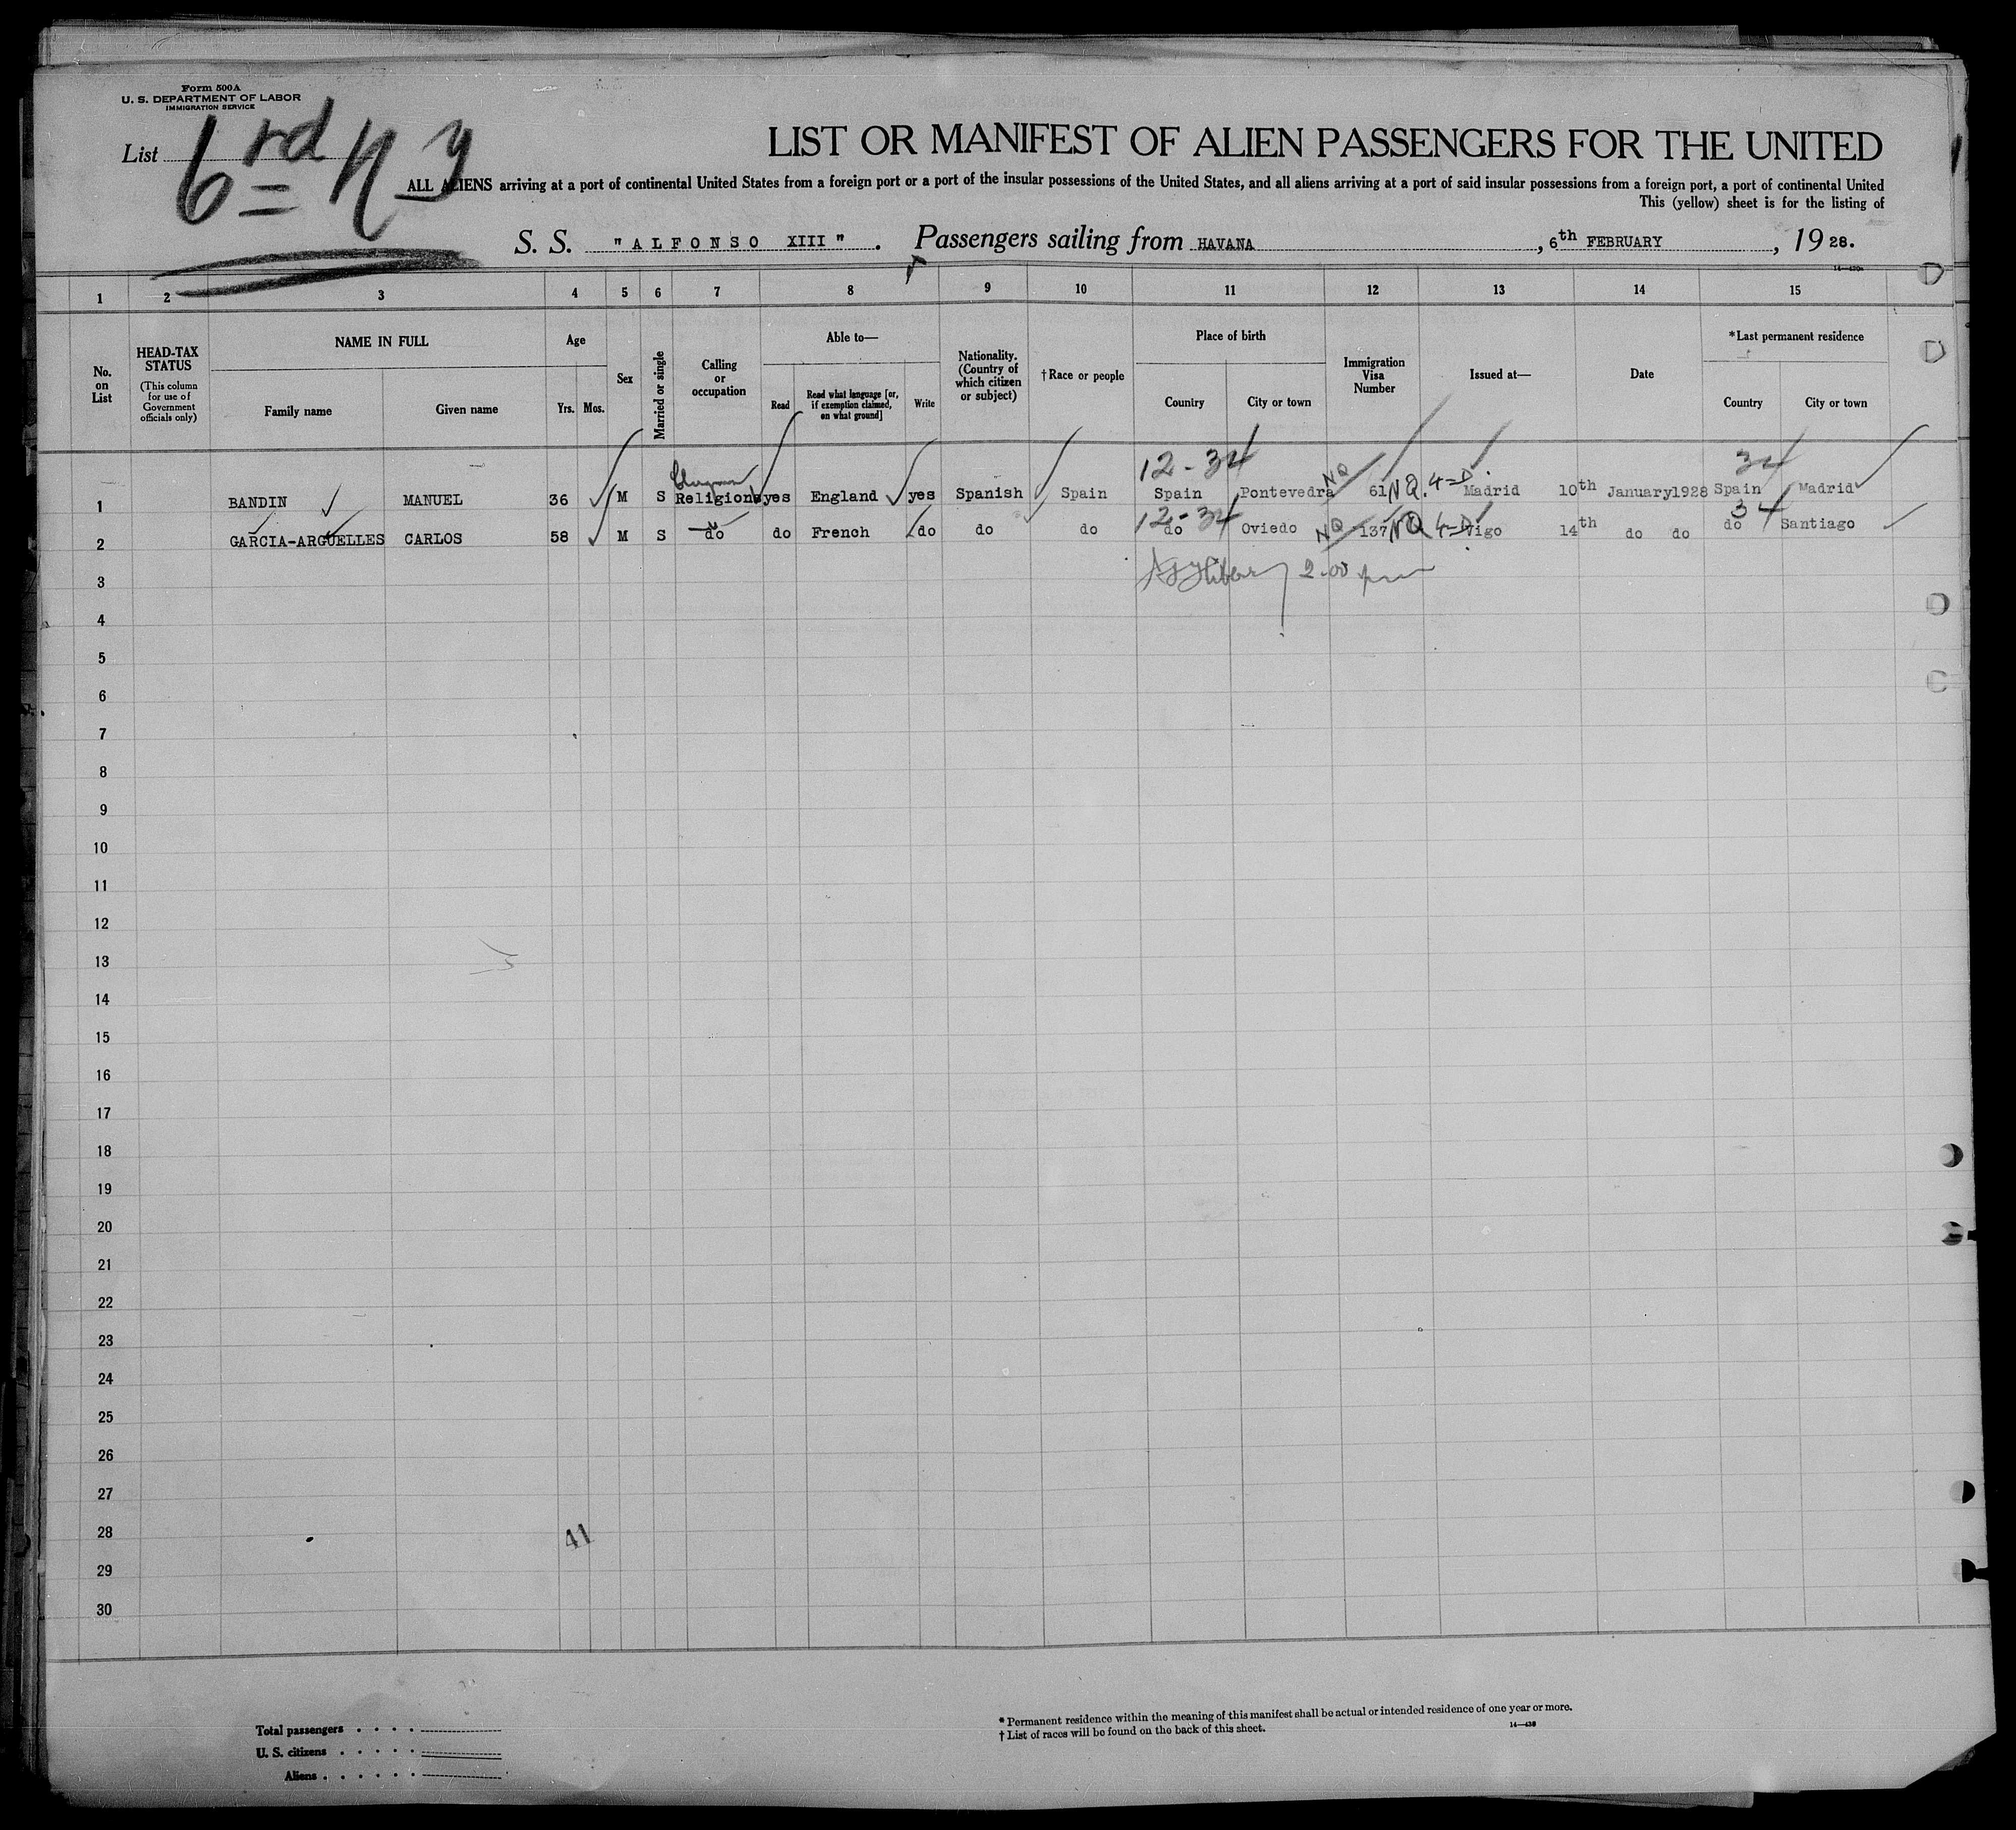 Form 500A
U. S. DEPARTMENT OF LABOR
IMMIGRATION SERVICE
List 6rd N Y
LIST OR MANIFEST OF ALIEN PASSENGERS FOR THE UNITED
ALL ALIENS arriving at a port of continental United States from a foreign port or a port of the insular possessions of the United States, and all aliens arriving at a port of said insular possessions from a foreign port, a port of continental United
This (yellow) sheet is for the listing of
S. S. "ALFONSO XIII". Passengers sailing from HAVANA, 6th FEBRUARY, 1928.
1 2 3 4 5 6 7 8 9 10 11 12 13 14 15
No. on List
HEAD-TAX STATUS
(This column for use of Government officials only)
NAME IN FULL
Family name Given name
Age
Yrs. Mos.
Sex
Married or single
Calling or occupation
Able to—
Read
Read what language [or, if exemption claimed, on what ground]
Write
Nationality. (Country of which citizen or subject)
†Race or people
Place of birth
Country City or town
Immigration Visa Number
Issued at—
Date
*Last permanent residence
Country City or town
12-34 34
Clergyman NQ NQ. 4-D
1 BANDIN MANUEL 36 M S Religions yes England yes Spanish Spain Spain Pontevedra 61 Madrid 10th January 1928 Spain Madrid
12-34 NQ NQ 4-D 34
2 GARCIA-ARGUELLES CARLOS 58 M S do do French do do do do Oviedo 137 Vigo 14th do do do Santiago
3 2.00 pm
4
5
6
7
8
9
10
11
12
13
14
15
16
17
18
19
20
21
22
23
24
25
26
27
28 41
29
30
Total passengers
U. S. citizens
Aliens
* Permanent residence within the meaning of this manifest shall be actual or intended residence of one year or more.
† List of races will be found on the back of this sheet.
14—438